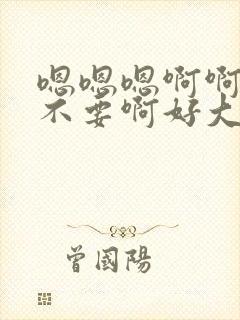 嗯嗯嗯啊啊
不要啊好大
曾國陽